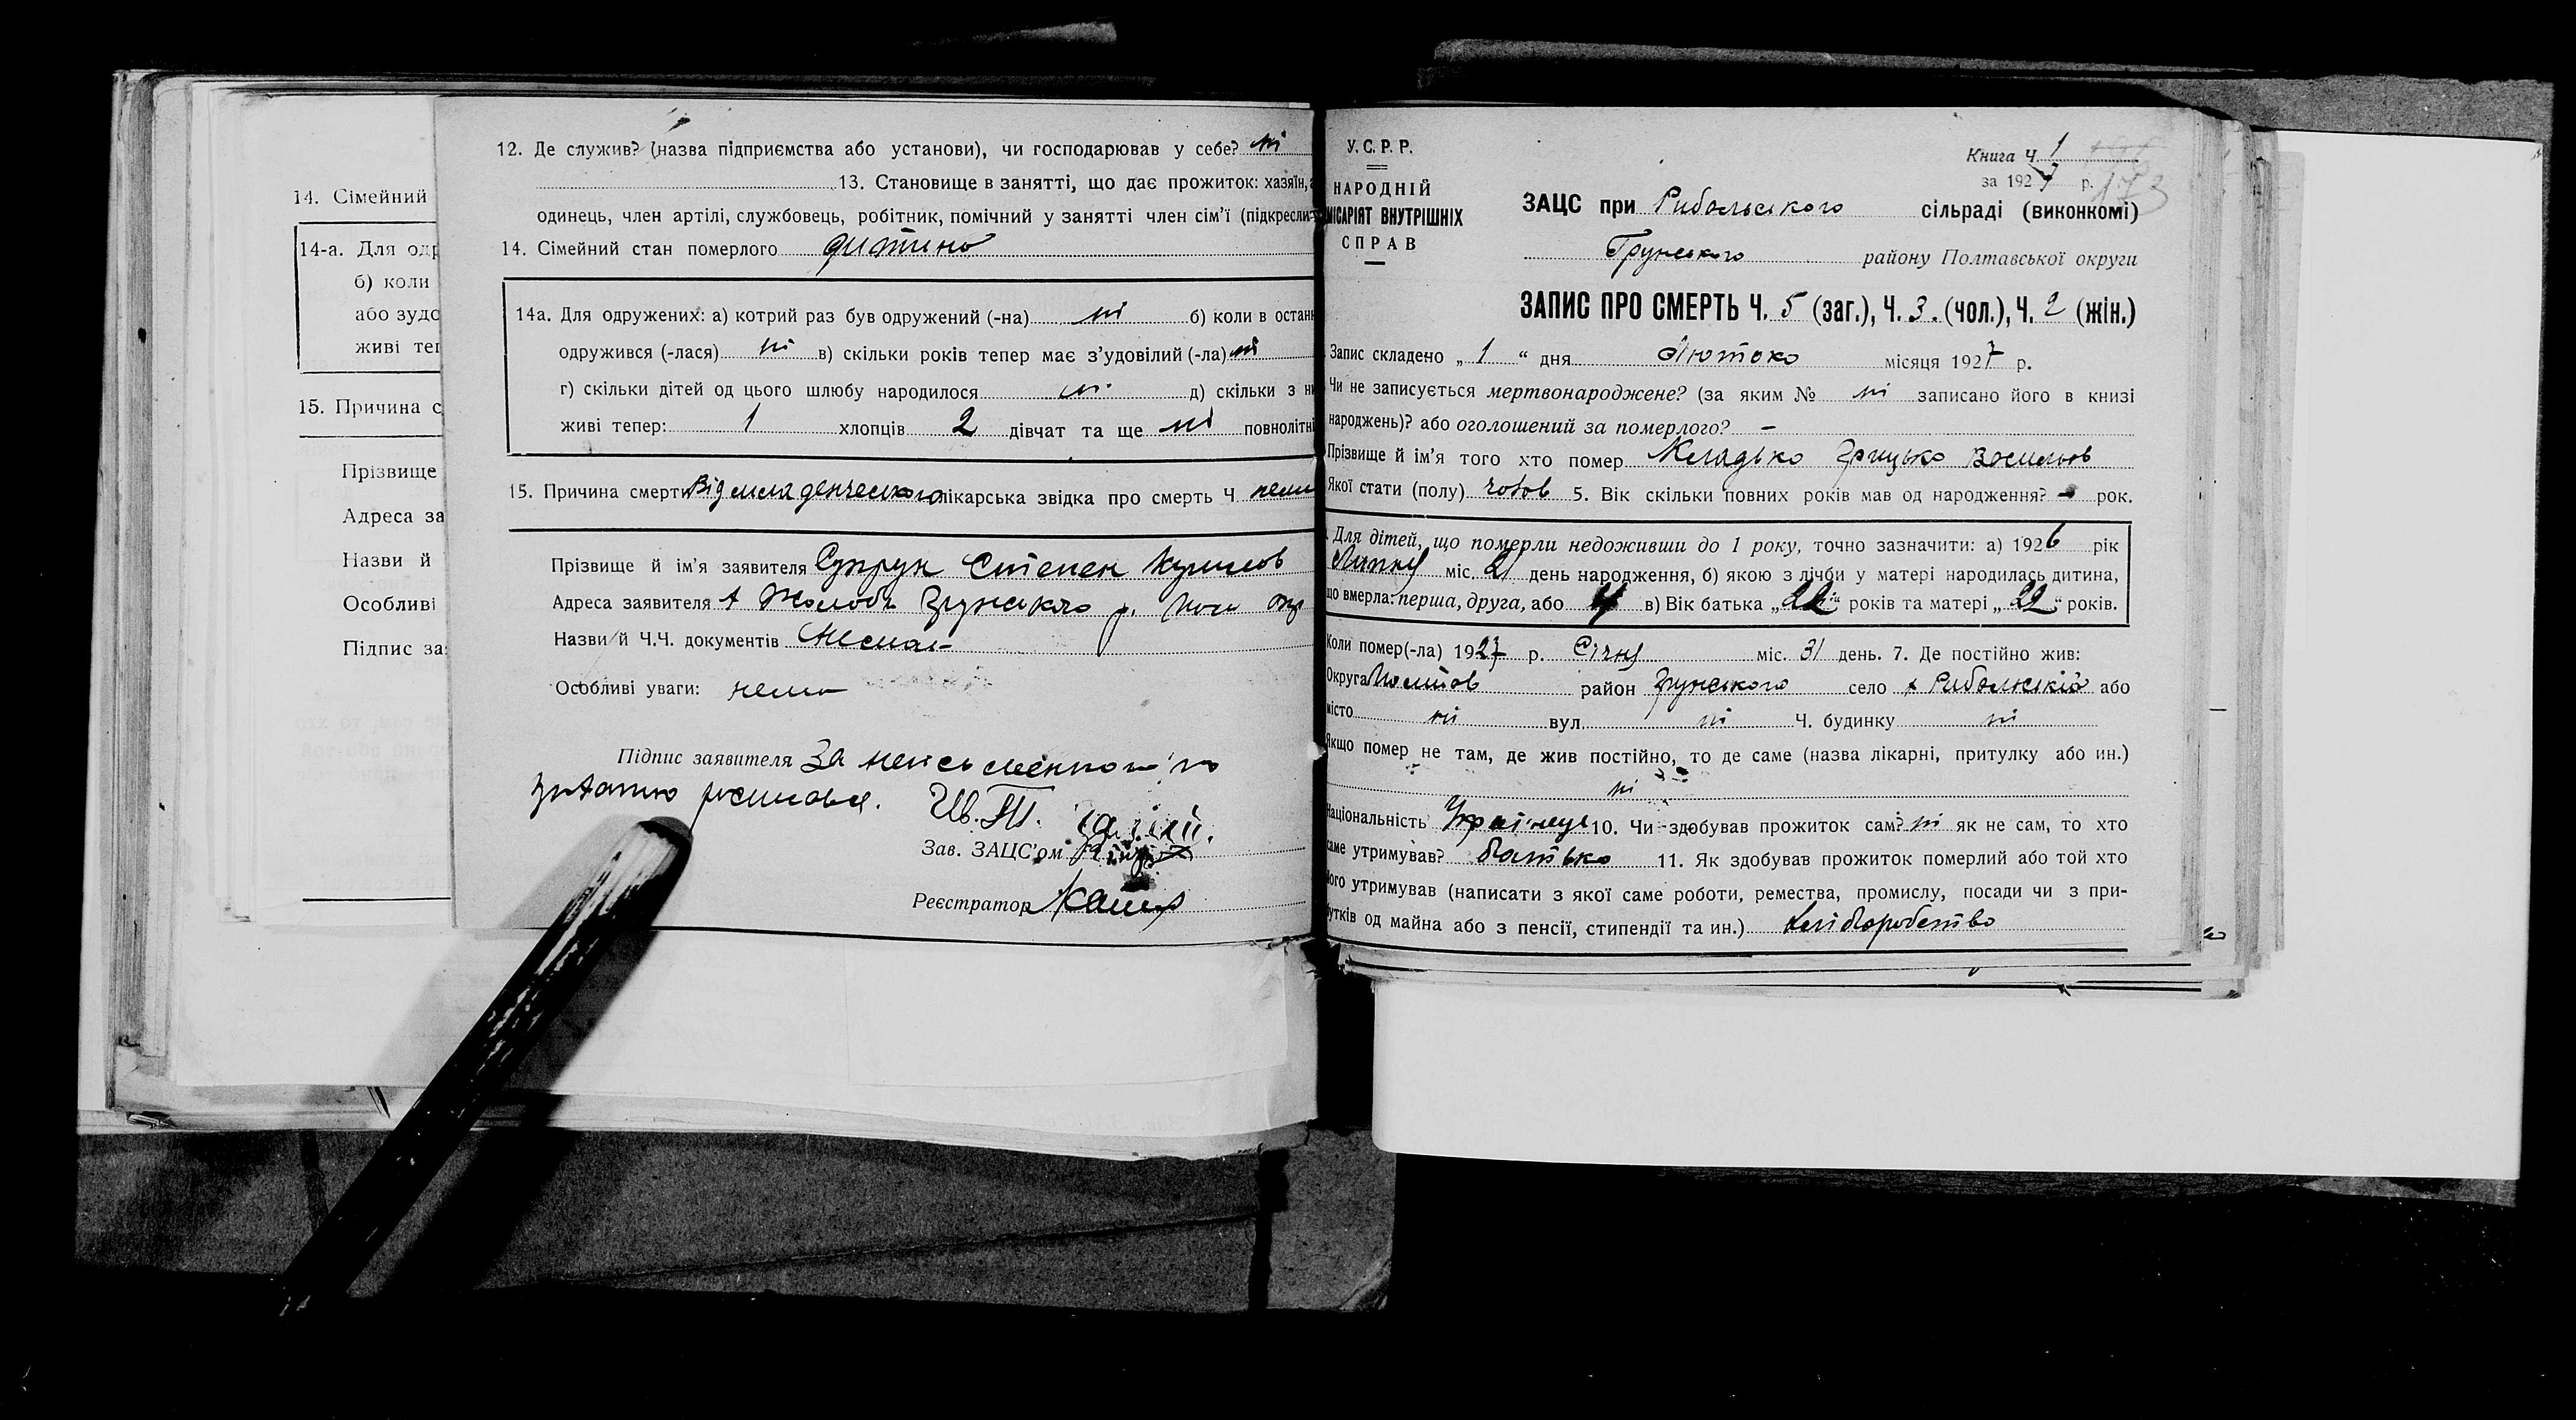 14. Сімейний
14-а. Для одр
б) коли
або зудо
живі теп
15. Причина с
Прізвище
Адреса за
Назви й
Особливі
Підпис за
12. Де служив? (назва підприємства або установи), чи господарював у себе? ні
13. Становище в занятті, що дає прожиток: хазяїн,
одинець, член артілі, службовець, робітник, помічний у занятті член сім'ї (підкресли
14. Сімейний стан померлого дитина
14а. Для одружених: а) котрий раз був одружений (-на) ні б) коли в остан
одружився (-лася) ні в) скільки років тепер має з'удовілий (-ла) ні
г) скільки дітей од цього шлюбу народилося ні д) скільки з н
живі тепер: 1 хлопців 2 дівчат та ще ні повнолітні
15. Причина смерти Від лікарська звідка про смерть Ч нема
Прізвище й ім'я заявителя Супрун Степан
Адреса заявителя х р.
Назви й Ч.Ч. документів Немає
Особливі уваги: нема
Підпис заявителя За
Зав. ЗАЦС'ом
Реєстратор
У.С.Р.Р.
НАРОДНІЙ
МІСАРІЯТ ВНУТРІШНІХ
СПРАВ
Книга Ч. 1
за 1927 р. 173
ЗАЦС при Рибальського сільраді (виконкомі)
Грунського району Полтавської округи
ЗАПИС ПРО СМЕРТЬ Ч. 5 (заг.), Ч. 3. (чол.), Ч. 2 (жін.)
Запис складено „ 1 “ дня Лютого місяця 1927 р.
Чи не записується мертвонароджене? (за яким № ні записано його в книзі
народжень)? або оголошений за померлого? –
Прізвище й ім'я того хто помер Грицько Васильов
Якої стати (полу) чолов 5. Вік скільки повних років мав од народження? – рок.
Для дітей, що померли недоживши до 1 року, точно зазначити: а) 1926 рік
міс. 21 день народження, б) якою з лічби у матері народилась дитина,
що вмерла: перша, друга, або 4 в) Вік батька „22“ років та матері „22“ років.
Коли помер(-ла) 1927 р. Січня міс. 31 день. 7. Де постійно жив:
Округа Полтав район Грунського село х Рибальський або
місто ні вул. ні Ч. будинку ні
Якщо помер не там, де жив постійно, то де саме (назва лікарні, притулку або ин.)
ні
Національність Українець 10. Чи здобував прожиток сам? ні як не сам, то хто
саме утримував? батько 11. Як здобував прожиток померлий або той хто
його утримував (написати з якої саме роботи, ремества, промислу, посади чи з при-
утків од майна або з пенсії, стипендії та ин.) хліборобство